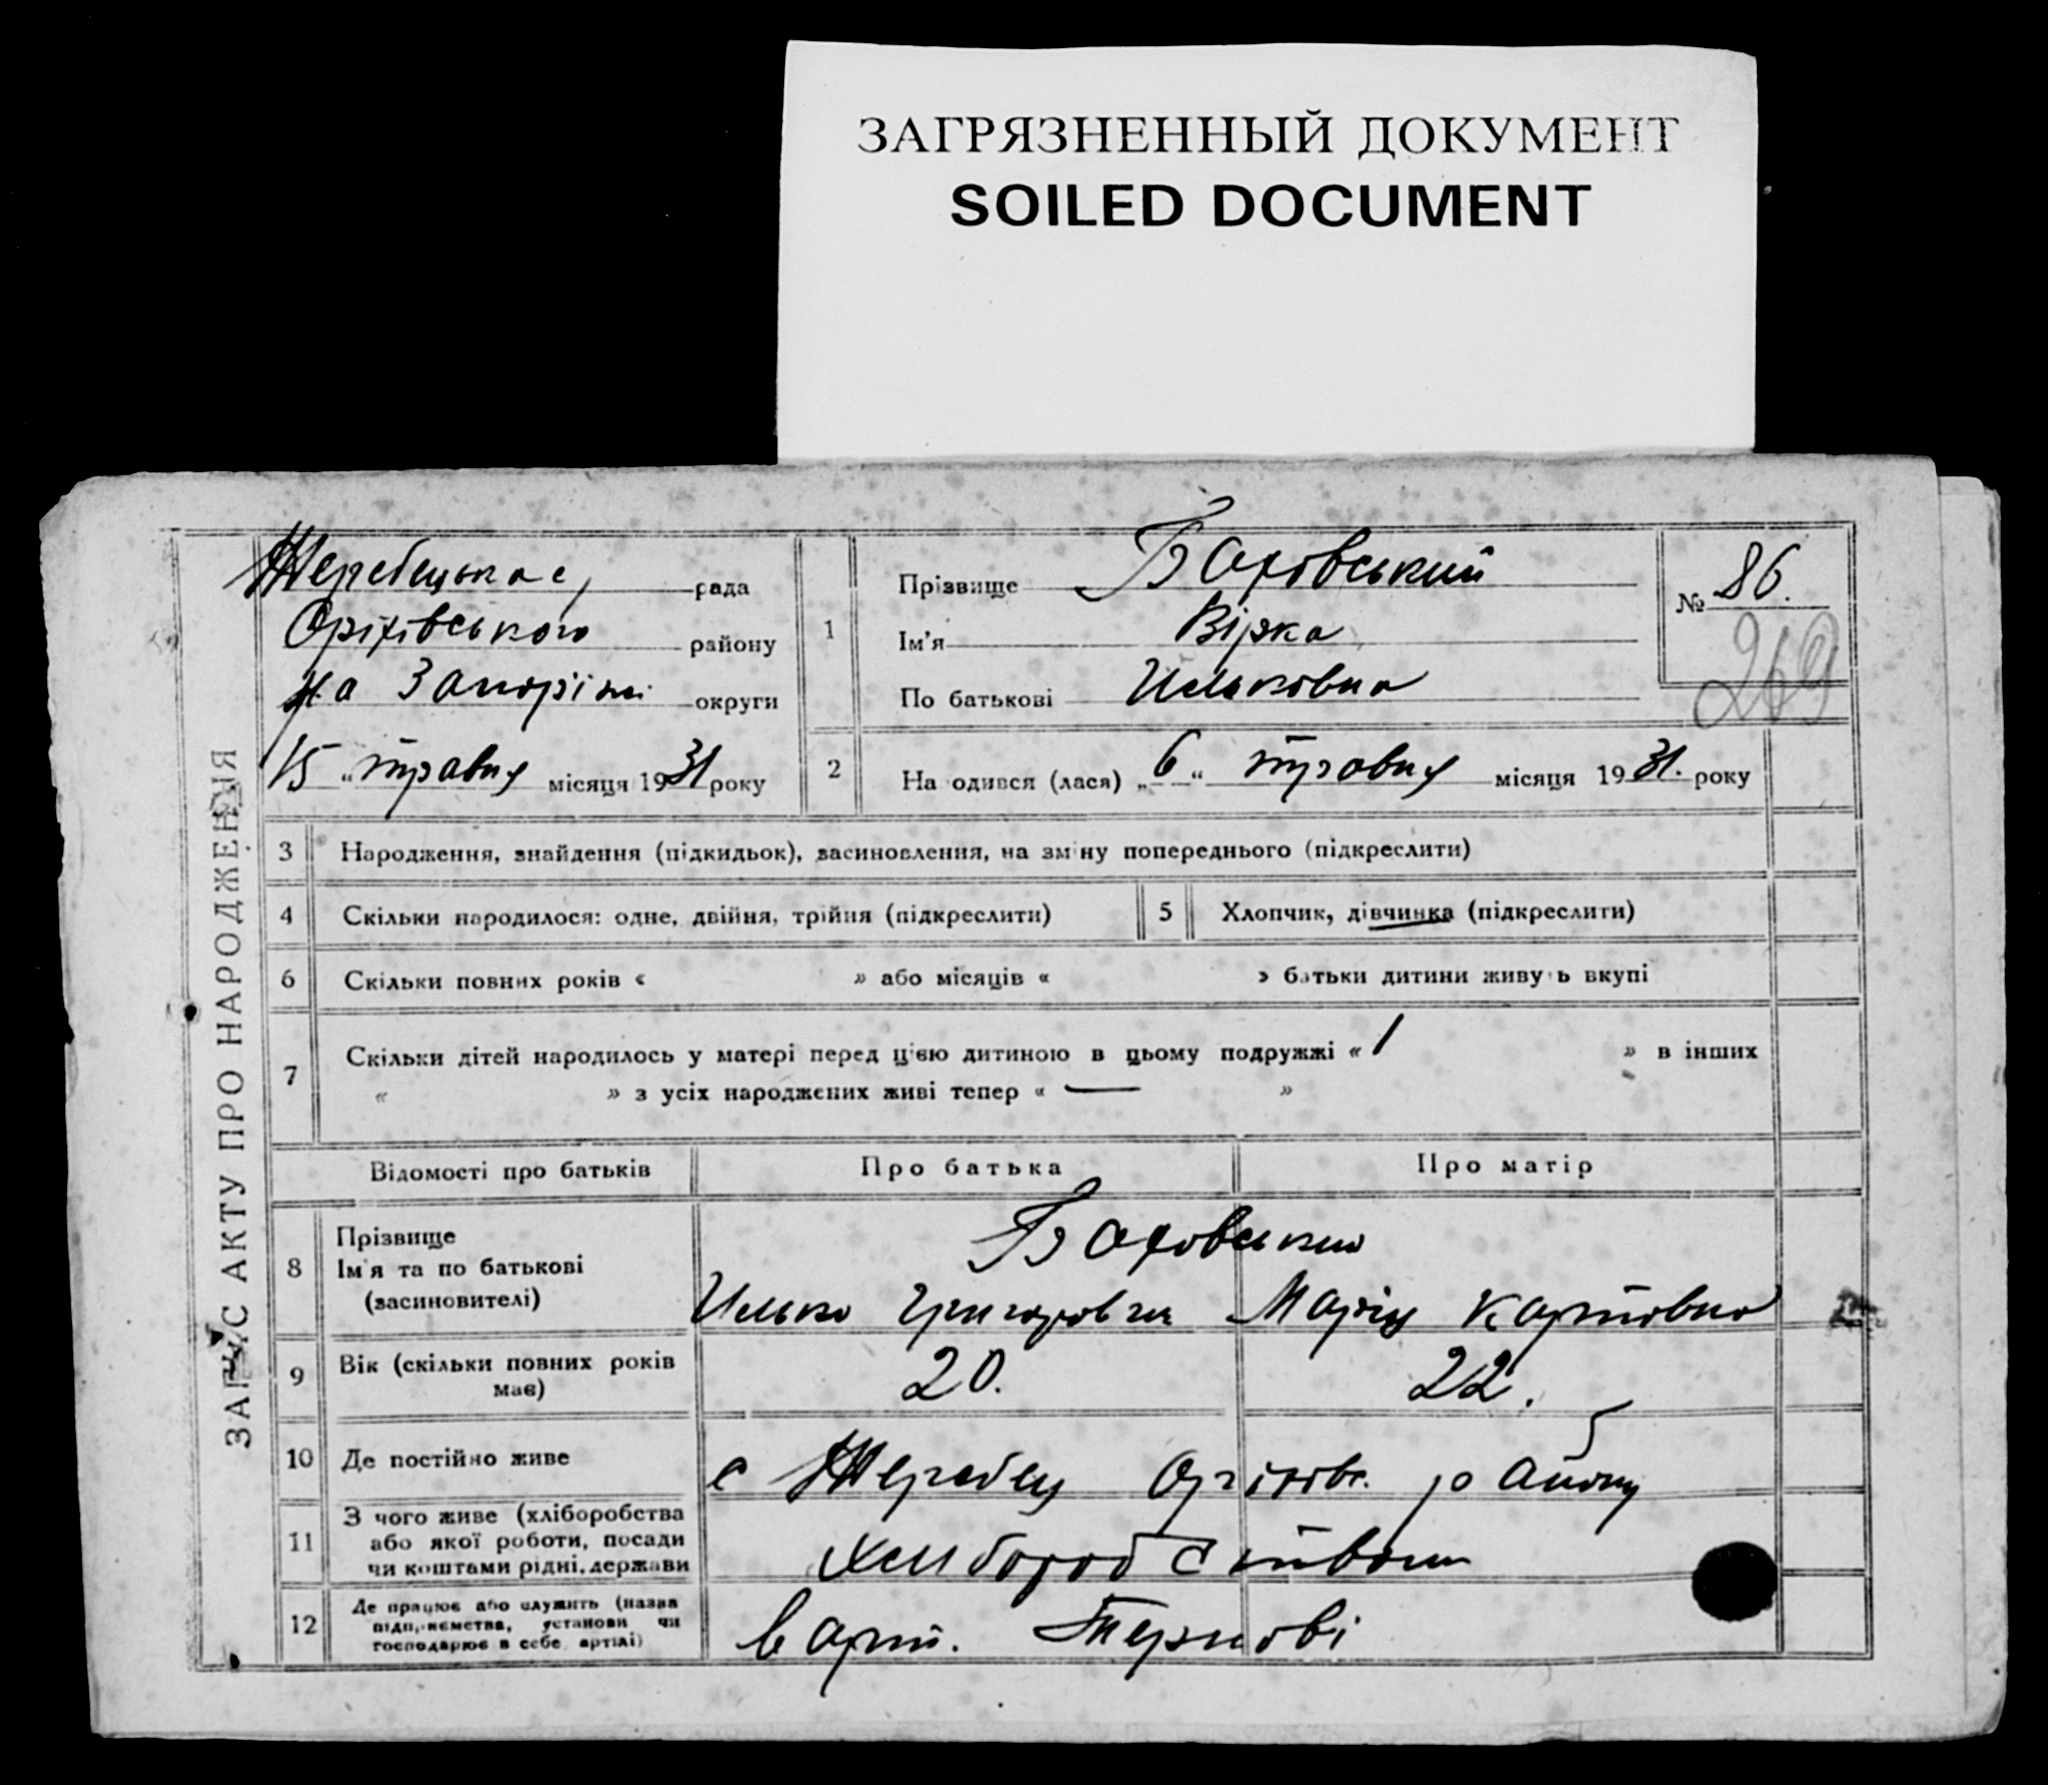 ЗАГРЯЗНЕННЫЙ ДОКУМЕНТ
SOILED DOCUMENT
ЗАПИС АКТУ ПРО НАРОДЖЕННЯ
Жеребецька с/ рада
Оріхівського району
на Запоріжі округи
15 " травня місяця 1931 року
1
Прізвище Баховський
Ім'я Вірка
По батькові Ильковна
№ 86.
269
2 На одився (лася) „ 6 " травня місяця 1931. року
3 Народження, знайдення (підкидьок), засиновлення, на зміну попереднього (підкреслити)
4 Скільки народилося: одне, двійня, трійня (підкреслити)
5 Хлопчик, дівчинка (підкреслити)
6 Скільки повних років « » або місяців « » батьки дитини живуть вкупі
7 Скільки дітей народилось у матері перед цією дитиною в цьому подружжі « 1 » в інших
« » з усіх народжених живі тепер « — »
Відомості про батьків Про батька Про матір
8 Прізвище
Ім'я та по батькові
(засиновителі)
Баховськи
Илько Григорович Марія Карповна
9 Вік (скільки повних років
має)
20. 22.
10 Де постійно живе с Жеребец Оріхівс. району
11 З чого живе (хліборобства
або якої роботи, посади
чи коштами рідні, держави
Хлиборобством
12 Де працює або служить (назва
підприємства, установи чи
господарює в себе артілі)
в арт.